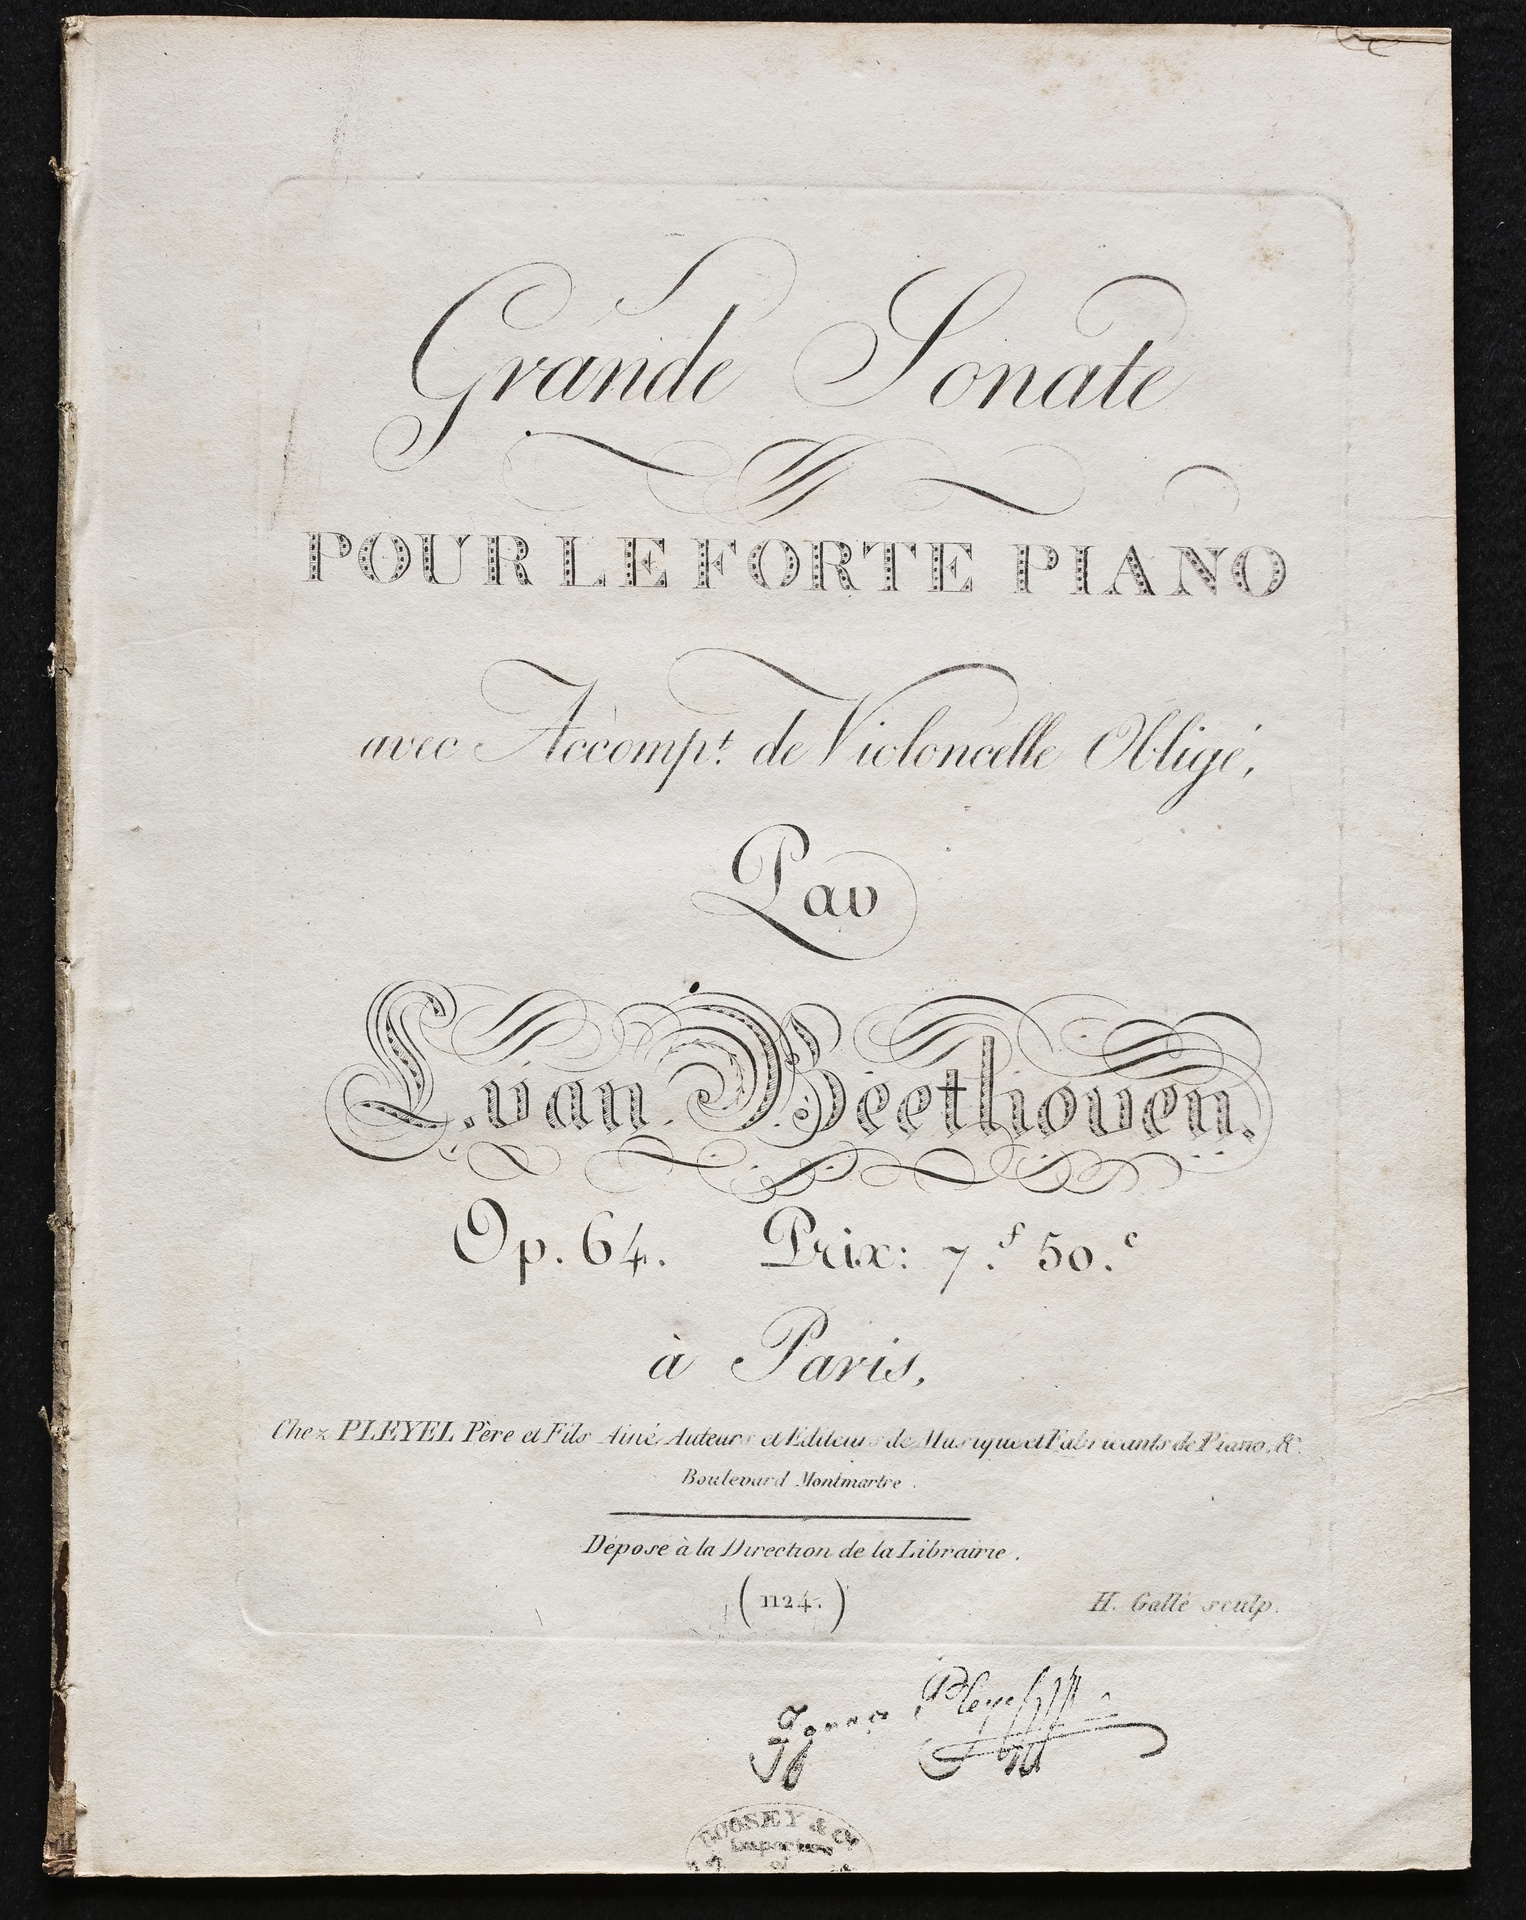 Grande Sonate
POUR LE FORTE PIANO
avec Accomp.t de Violoncelle Obligé,
Par
L. van Beethoven.
Op. 64. Prix: 7.f 50.c
à Paris,
Chez PLEYEL Père et Fils Ainé, Auteurs et Editeurs de Musique et Fabricants de Piano, &c.
Boulevard Montmartre.
Déposé à la Direction de la Librairie.
(1124.)
H. Gallé sculp.
Ignace Pleyel
BOOSEY & Co
Importers
of